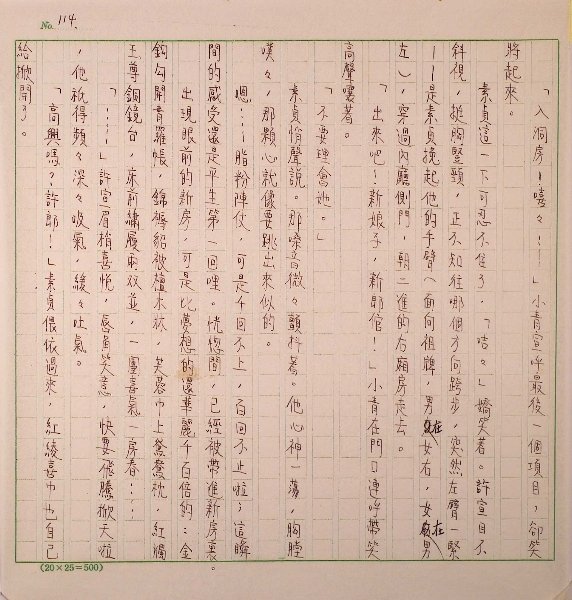 No. 114.
「入洞房!嘻々……!」小青宣呼最後一個項目,卻笑
將起來。
素貞這一下可忍不住了,「咭々」嬌笑著。許宣目不
斜視,挺胸豎頸,正不知往哪個方向跨步,突然左臂一緊
——是素貞挽起他的手臂(面向祖牌,男在女右,女在男
左),穿過內廳側門,朝二進的右廂房走去。
「出來吧!新娘子,新郎倌!」小青在門口連呼帶笑
高聲嚷著。
「不要理會她。」
素貞悄聲說。那嗓音微々顫抖著。他心神一蕩,胸膛
噗々,那顆心就像要跳出來似的。
嗯……脂粉陣仗,可是千回不上,百回不止啦;這瞬
間的感受還是平生第一回哩。恍惚間,已經被帶進新房裏。
出現眼前的新房,可是比夢想的還華麗千百倍的:金
鉤勾開青羅帳,錦褥貂被檀木牀,芙蓉巾上鴛鴦枕,紅燭
玉尊銅鏡台,床前繡履兩双並,一團喜氣一房春……
「……」許宣眉梢喜悅,唇角笑意,快要飛騰掀天啦
,他就得頻々深々吸氣,緩々吐氣。
「高興嗎?許郎!」素貞偎依過來,紅綾喜巾也自己
給掀開了。
(20×25=500)